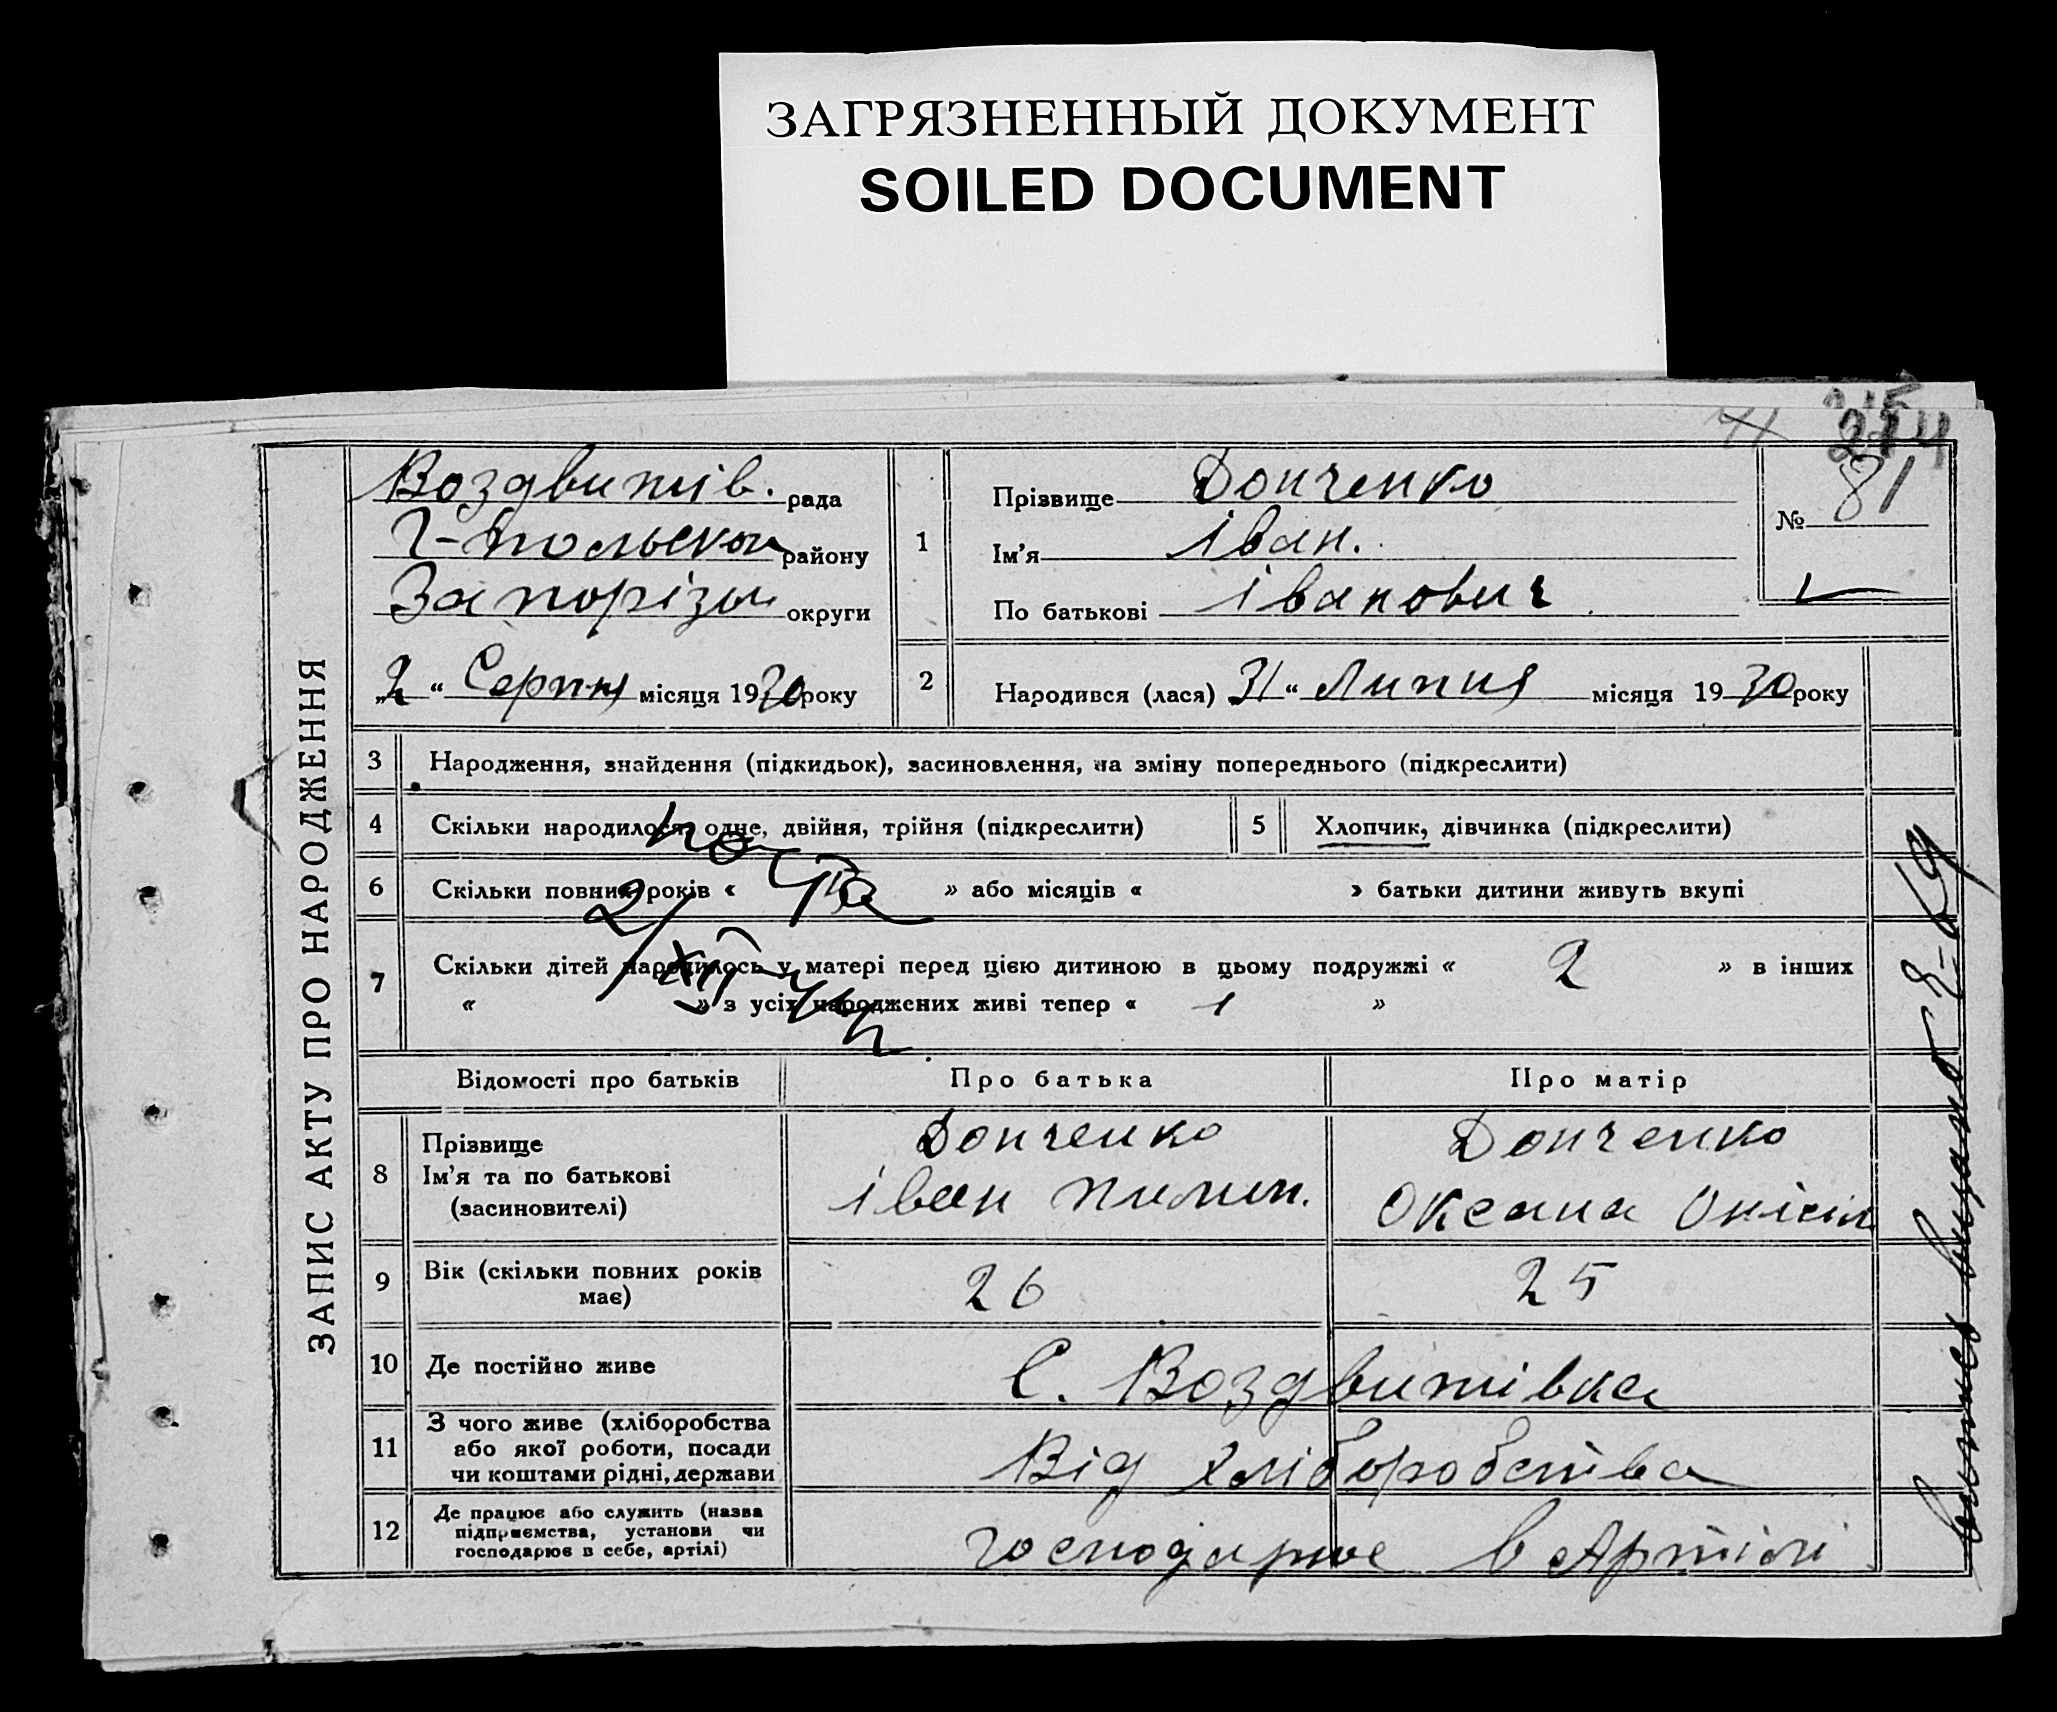 ЗАГРЯЗНЕННЫЙ ДОКУМЕНТ
SOILED DOCUMENT
ЗАПИС АКТУ ПРО НАРОДЖЕННЯ
274
Воздвижів. рада
Г-польськ району
Запорізьк округи
„2“ Серпня місяця 1930 року
1
Прізвище Донченко
Ім'я Іван.
По батькові Іванович
№ 81
2
Народився (лася) 31 “ Липня місяця 1930 року
3 Народження, знайдення (підкидьок), засиновлення, на зміну попереднього (підкреслити)
4 Скільки народилося: одне, двійня, трійня (підкреслити)
5 Хлопчик, дівчинка (підкреслити)
6 Скільки повних років « » або місяців « » батьки дитини живуть вкупі
7 Скільки дітей народилось у матері перед цією дитиною в цьому подружжі « 2 » в інших
« » з усіх народжених живі тепер « 1 »
21/XII
Відомості про батьків Про батька Про матір
8 Прізвище
Ім'я та по батькові
(засиновителі)
Донченко
Іван Пилип.
Донченко
Оксана Онісім
9 Вік (скільки повних років
має)
26 25
10 Де постійно живе С. Воздвижівка
11 З чого живе (хліборобства
або якої роботи, посади
чи коштами рідні, держави
Від хліборобства
12 Де працює або служить (назва
підприємства, установи чи
господарює в себе, артілі)
господарює в Артілі